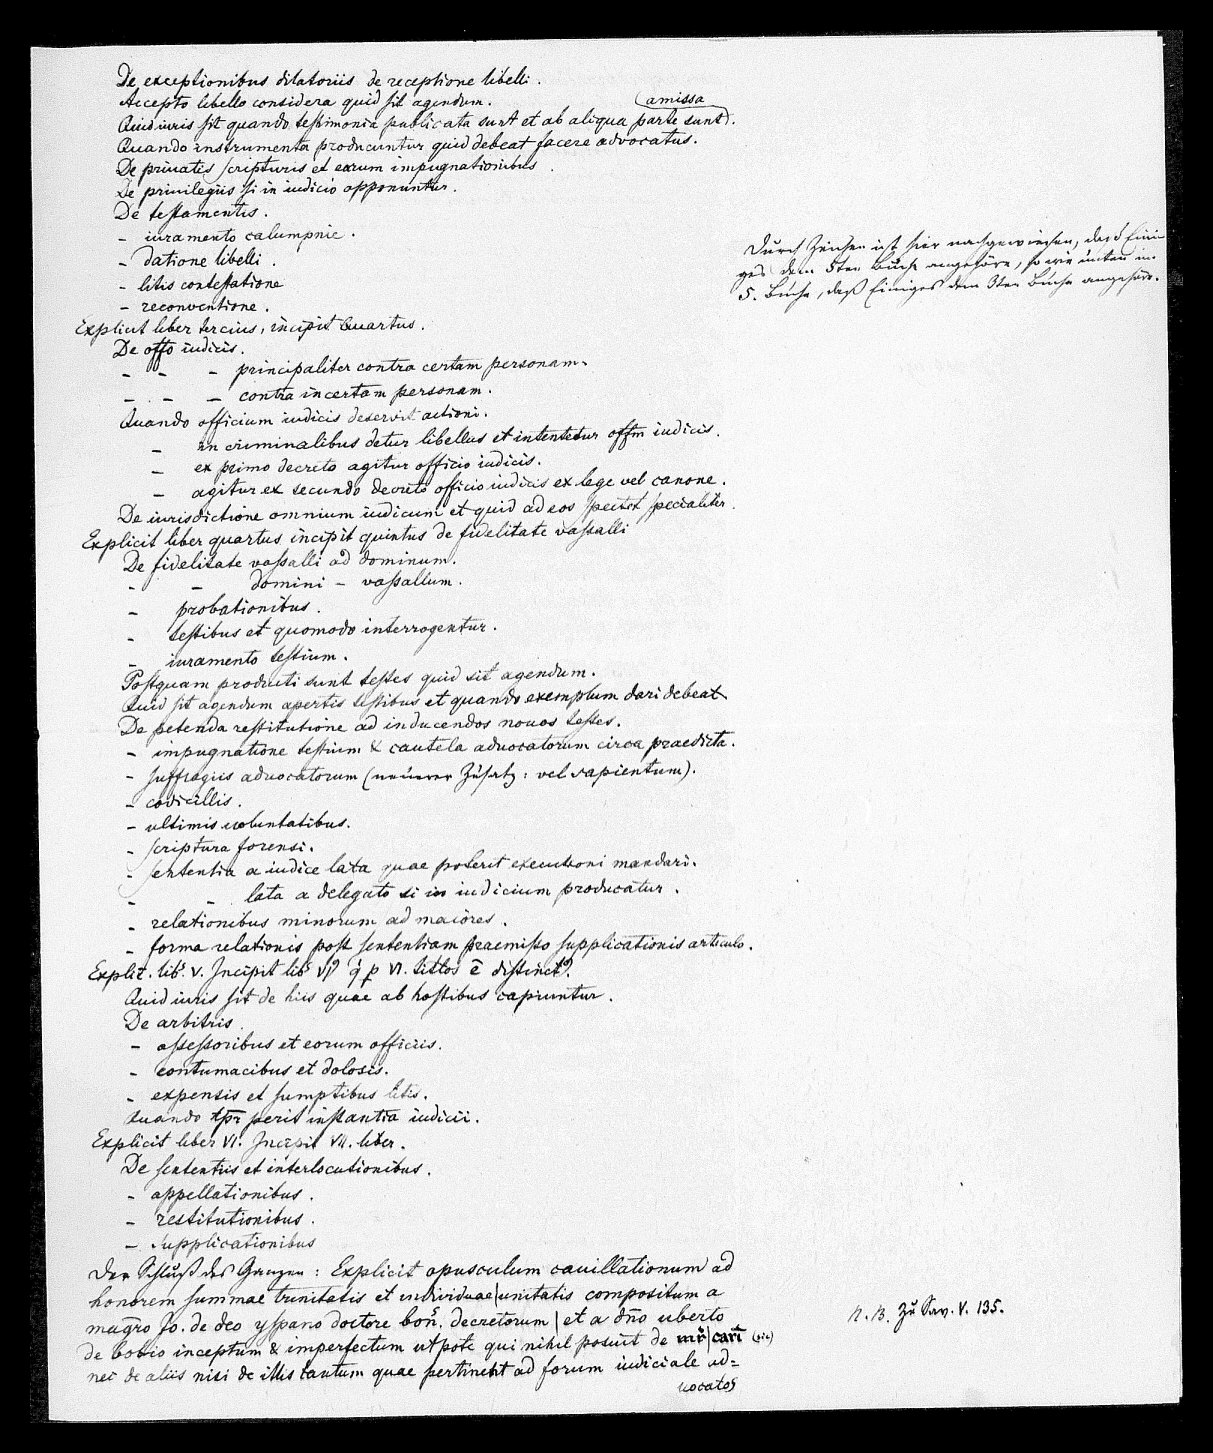 De exceptionibus dilatoriis de receptione libelli.
Accepto libello considera quid sit agendum.
amissa
Quid iuris sit quando testimonia publicata sunt et ab aliqua parte sunt.
Quando instrumenta producuntur quid debeat facere advocatus.
De priuatis scripturis et earum impugnationibus.
De priuilegiis si in iudicio opponuntur.
De testamentis.
- iuramento calumpnie.
- datione libelli.
- litis contestatione
- reconventione.
Durch Zeichen ist hier nachgewiesen, daß Eini-
ges dem 5ten Buche angehöre, so wie unten im
5. Buche, daß Einiges dem 3ten Buche angehöre.
Explicit liber tercius, incipit Quartus.
De offo iudicis.
- - - principaliter contra certam personam.
- - - contra incertam personam.
Quando officium iudicis deservit actioni.
- in criminalibus detur libellus et intentetur offm iudicis.
- ex primo decreto agitur officio iudicis.
- agitur ex secundo decreto officio iudicis ex lege vel canone.
De iurisdictione omnium iudicum et quid ad eos spectet specialiter.
Explicit liber quartus incipit quintus de fidelitate vassalli
De fidelitate vassalli ad dominum.
- - domini - vassallum.
- probationibus.
- testibus et quomodo interrogentur.
- iuramento testium.
Postquam producti sunt testes quid sit agendum.
Quid sit agendum apertis testibus et quando exemplum dari debeat
De petenda restitutione ad inducendos nouos testes.
- impugnatione testium & cautela aduocatorum circa praedicta.
- suffragiis aduocatorum (neuerer Zusatz: vel sapientum).
- codicillis.
- ultimis uoluntatibus.
- scriptura forensi.
- sententia a iudice lata quae poterit executioni mandari.
- - lata a delegato si in iudicium producatur.
- relationibus minorum ad maiores.
- forma relationis post sententiam praemisso supplicationis articulo.
Explic. lib. V. Incipit lib VI q p VI. titlos ē distinct.
Quid iuris sit de hiis quae ab hostibus capiuntur.
De arbitris.
- assessoribus et eorum officiis.
- contumacibus et dolosis.
- expensis et sumptibus litis.
Quando tpr perit instantia iudicii.
Explicit liber VI. Incipit VII. liber.
De sententiis et interlocutionibus.
- appellationibus.
- restitutionibus.
- supplicationibus
Der Schluß des Ganzen: Explicit opusculum cauillationum ad
honorem summae trinitatis et individuae|unitatis compositum a
magro Jo. de deo yspano doctore bon. decretorum | et a dño uberto
de bobio inceptum & imperfectum utpote qui nihil posuit de mr|cari (sic)
nec de aliis nisi de illis tantum quae pertinent ad forum iudiciale ad=
uocatos
N. B. Zu Sav. V. 135.